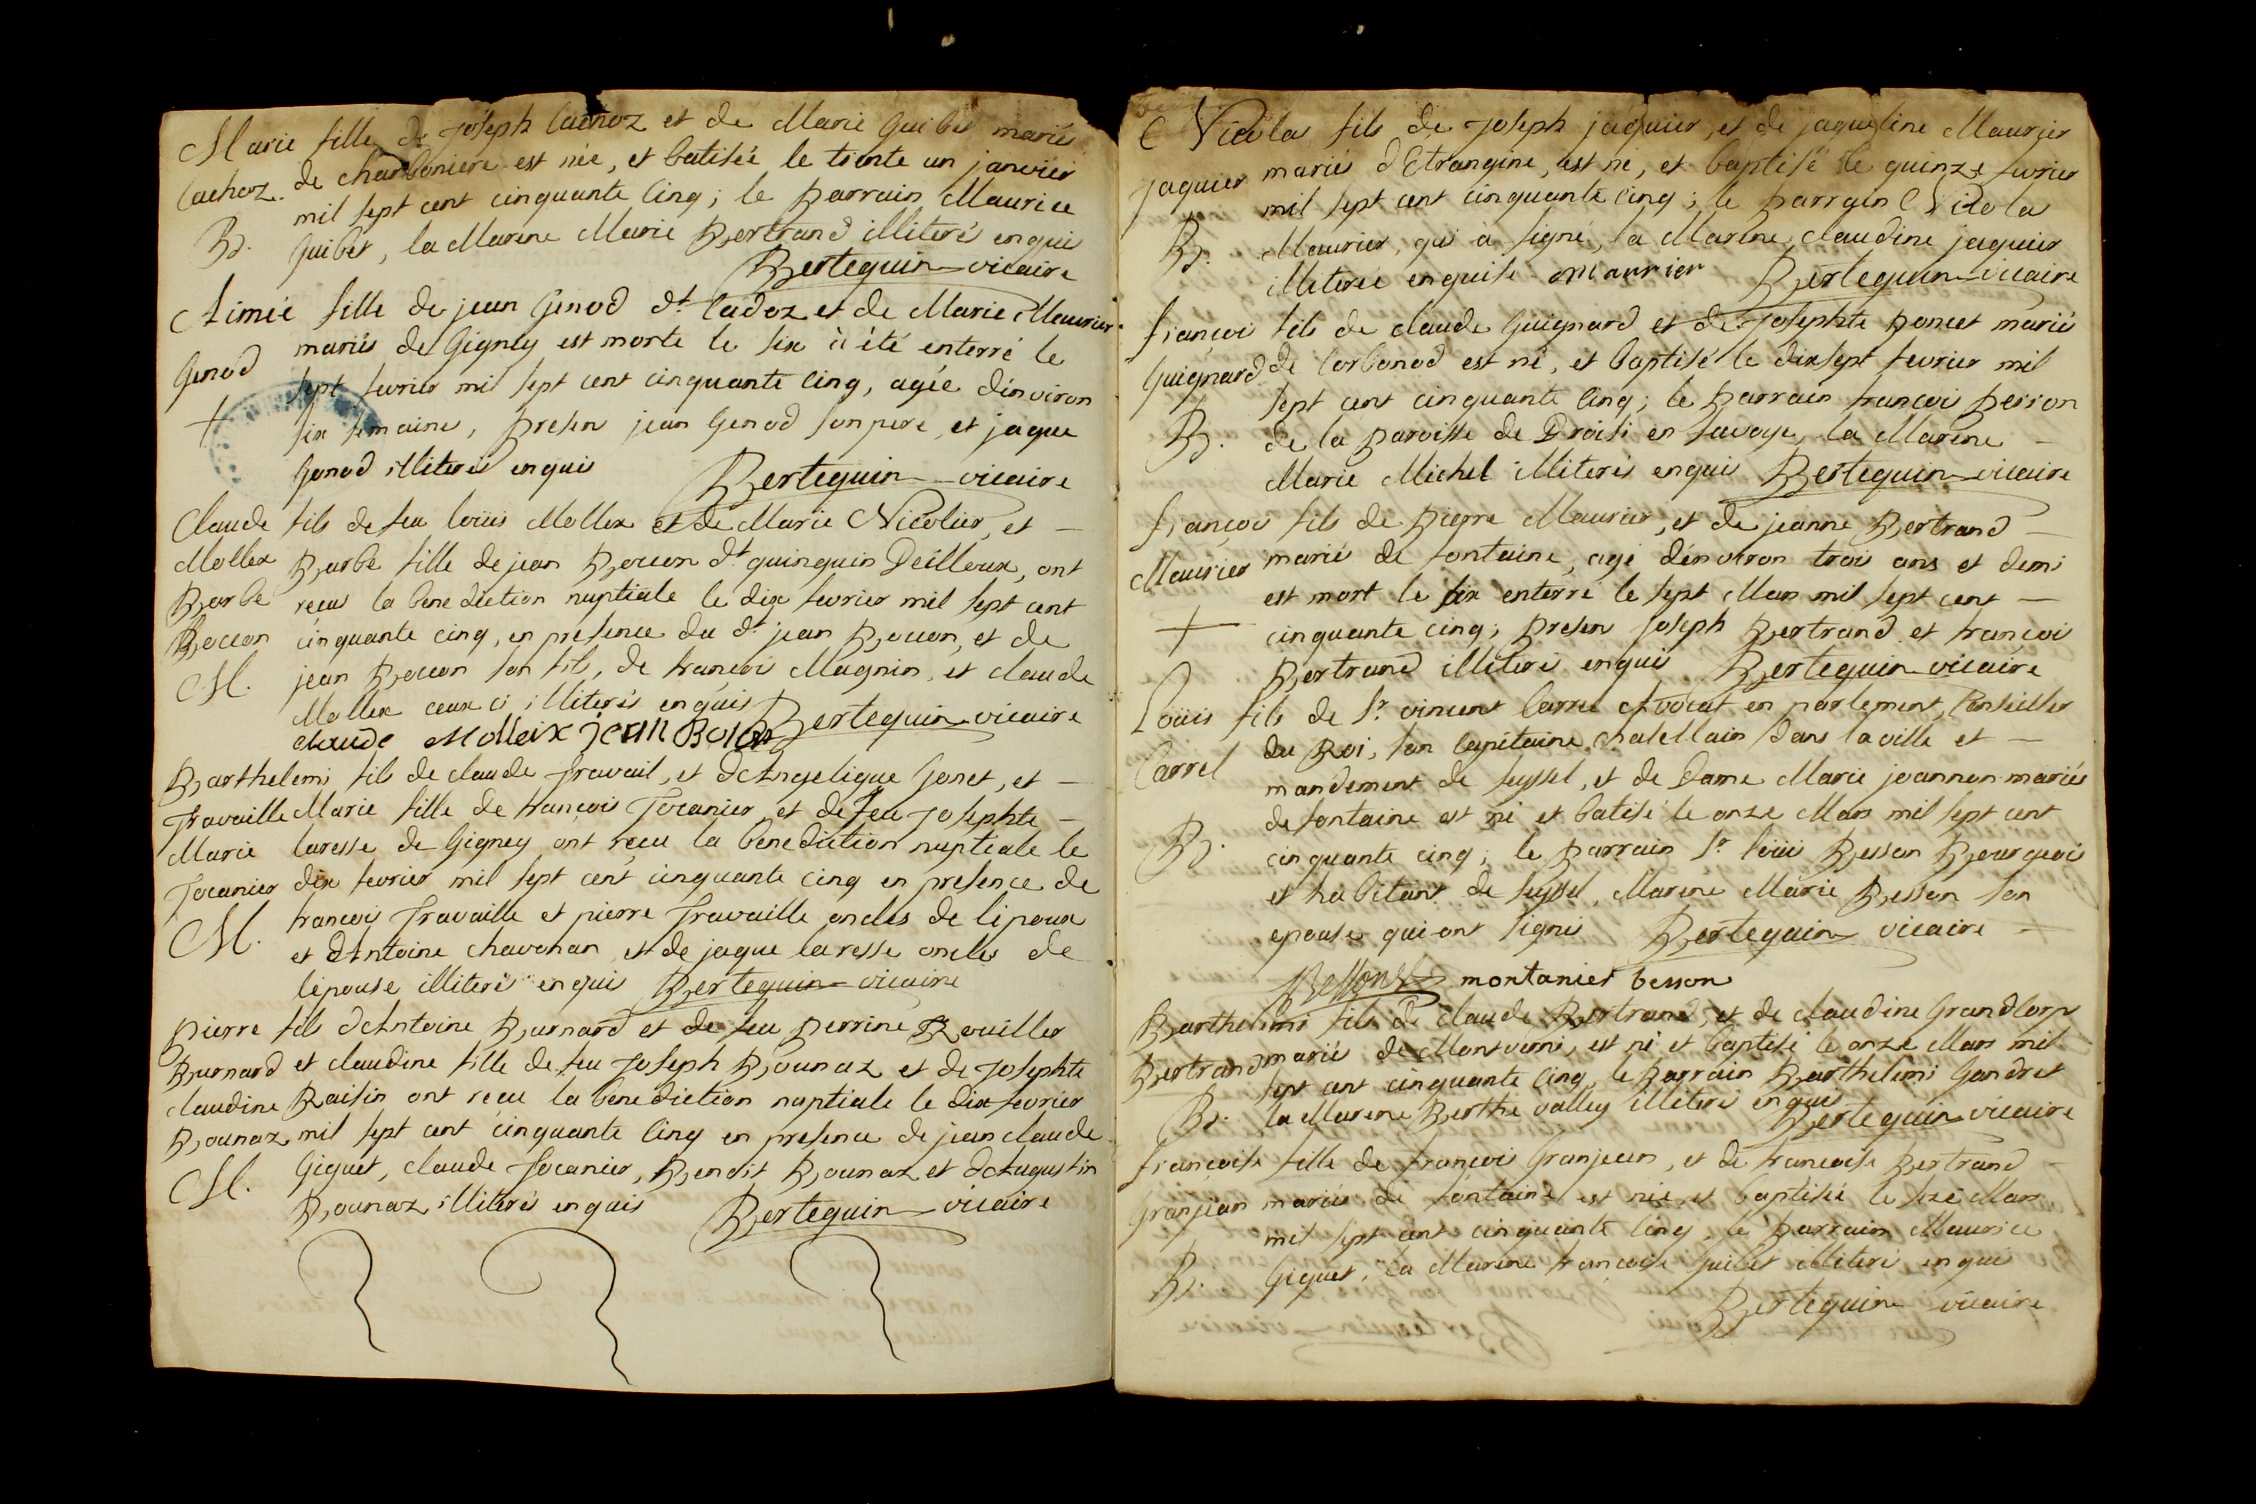 Marie fille de Joseph Cachoz et de Marie Guibet mariés
Cachoz. de charboniere est née, et batisée le trente un janvier
mil sept cent cinquante cinq; le parrain Maurice
B. Guibet, la Marene Marie Bertrand illiteré enquis
Bertequin vicaire
Aimée fille de jean Genod dt Cadoz et de Marie Maurier
mariés de Gigney est morte le six à été enterré le
Genod sept fevrier mil sept cent cinquante cinq, agée dénviron
+ six semaine, presen jean Genod son pere, et jaque
Genod illiterés enquis Bertequin vicaire
Claude fils de feu loüis Mollex et de Marie Nicolier, et
Mollex Barbe fille de jean Bocon dt quinquin Deilloux, ont
Barbe reçus la benediction nuptiale le dix fevrier mil sept cent
Bocon cinquante cinq, en presence du dt jean Bocon, et de
M. jean Bocon son fils, de françois Magnin, et claude
Mollex ceux ci illiterés enquis
claude Molleix jean Bocon Bertequin vicaire
Barthelemi fils de claude Travail, et d'Angelique Gonet, et
Travaille Marie fille de françois Tocanier et de feu Josephte
Marie Caresse de Gigney ont reçu la benediction nuptiale le
Tocanier dix fevrier mil sept cent cinquante cinq en presence de
M. francois Travaille et pierre Travaille oncles de lépoux
et d'Antoine chavonan et de jaque Caresse oncles de
lépouse illiteré enquis Bertequin vicaire
Pierre fils d'Antoine Burnard et de feu perrine Rouiller
Burnard et claudine fille de feu Joseph Bounaz et de Josephte
claudine Raisin ont reçu la benediction nuptiale le dix fevrier
Bounaz mil sept cent cinquante cinq en presence de jean claude
M. Giguet, claude Tocanier, Benoit Bounaz et d'Augustin
Bounaz illiterés enquis Bertequin vicaire
Nicola fils de Joseph jaquier, et de jaqueline Maurier
jaquier mariés d'Etrangine, est né, et baptisé le quinze fevrier
mil sept cent cinquante cinq; le parrain Nicola
B. Maurier, qui a signé, la Marene claudine jaquier
illiterée enquise maurier Bertequin vicaire
françois fils de claude Guignard et de Josephte poncet mariés
Guignard de Corbonod est né, et baptisé le dixsept fevrier mil
sept cent cinquante cinq; le parrain françois perron
B. de la paroisse de Droisi en Savoye, la Marene
Marie Michel illiterés enquis Bertequin vicaire
françois fils de pierre Maurier, et de jeanne Bertrand
Maurier mariés de fontaine, agé dénviron trois ans et demi
est mort le six enterré le sept Mars mil sept cent
+ cinquante cinq; presen Joseph Bertrand et françois
Bertrand illiteré enquis Bertequin vicaire
Loüis fils de Sr vincent Carrel Avocat en parlement, Conseiller
du Roi, son Capitaine chatellain dans la ville et
Carrel mandement de seyssel, et de Dame Marie joannon mariés
de fontaine est né et batisé le onze Mars mil sept cent
B. cinquante cinq; le parrain Sr loüis Besson Bourgeois
et habitant de seyssel, Marene Marie Besson son
epouse qui ont signés Bertequin vicaire
Besson montanier besson
Barthelemi fils de claude Bertrand, et de claudine Grandcorp
Bertrand mariés de Montverni, est né et baptisé le onze Mars mil
sept cent cinquante cinq le parrain Barthelemi Gandret
B. la Marene Berthe valley illiteré enquis
Bertequin vicaire
françoise fille de françois Granjean, et de francoise Bertrand
Granjean mariés de fontaine est née, et baptisée le seze Mars
mil sept cent cinquante cinq, le parrain Maurice
B. Giguet, la Marene francoise Guibet illiteré enquis
Bertequin vicaire